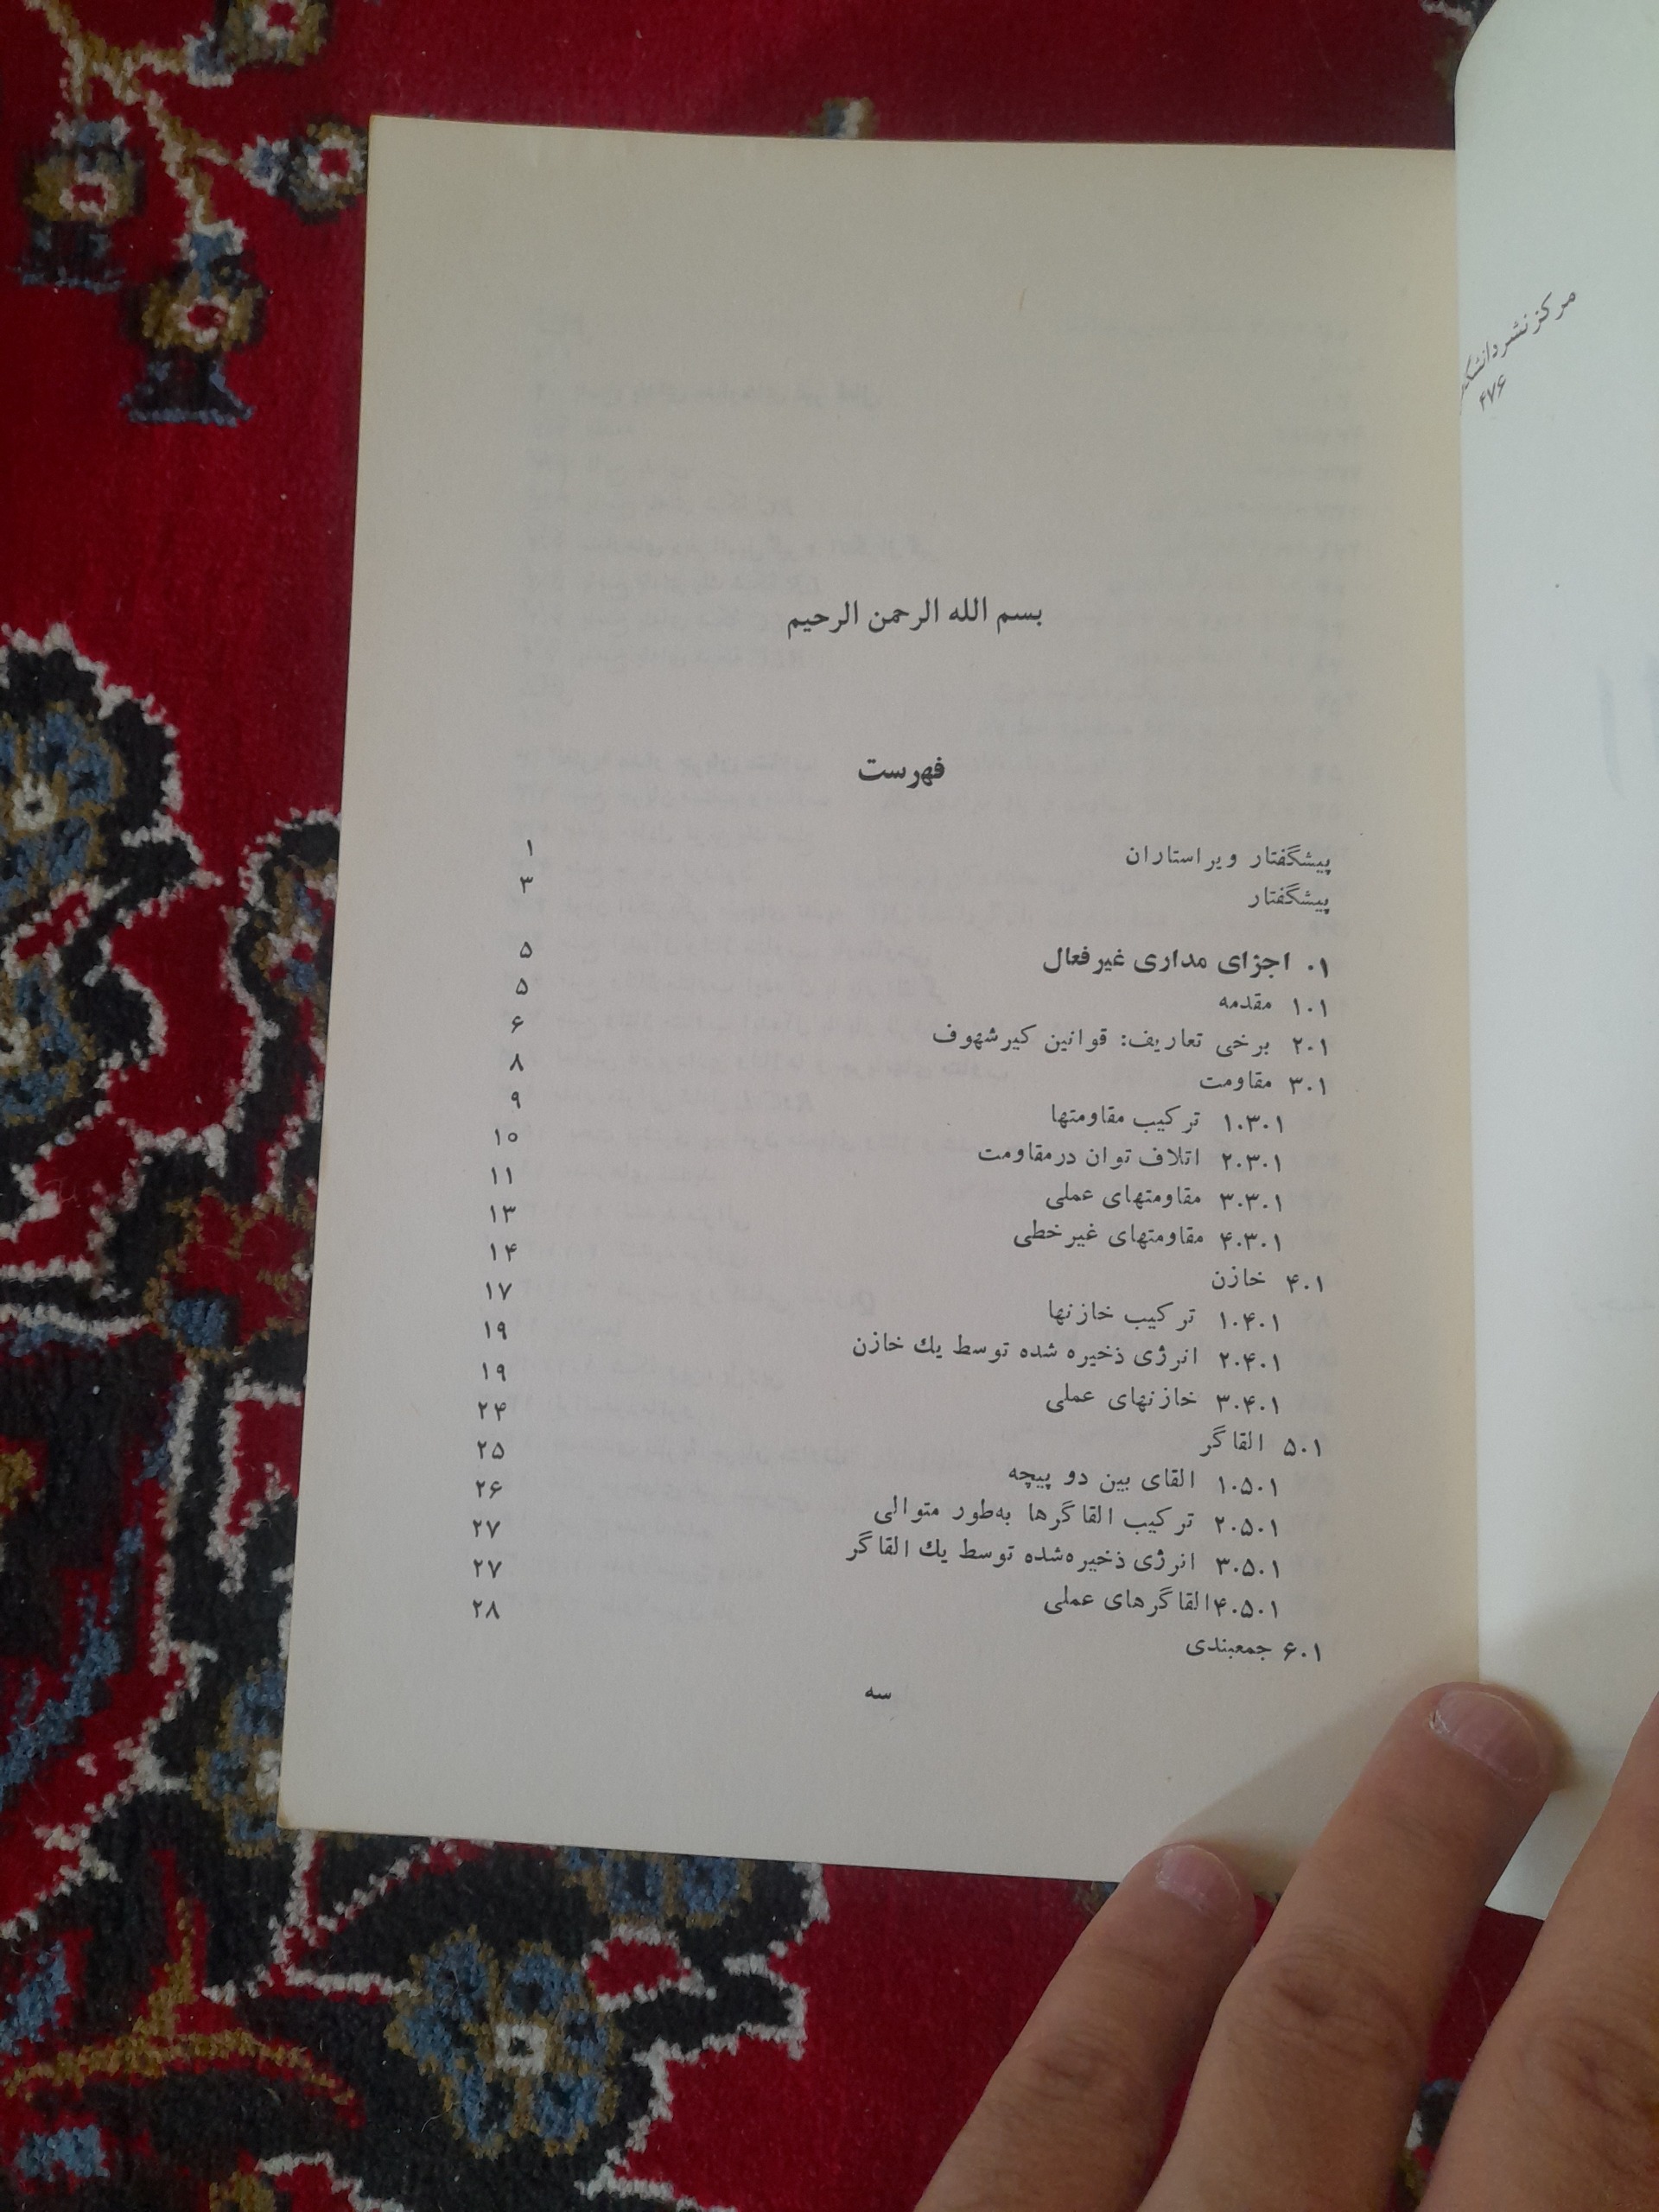 بسم الله الرحمن الرحیم
فهرست
پیشگفتار ویراستاران ۱
پیشگفتار ۳
۱. اجزای مداری غیرفعال ۵
۱.۱ مقدمه ۵
۲.۱ برخی تعاریف: قوانین کیرشهوف ۶
۳.۱ مقاومت ۸
۱.۳.۱ ترکیب مقاومتها ۹
۲.۳.۱ اتلاف توان درمقاومت ۱۰
۳.۳.۱ مقاومتهای عملی ۱۱
۴.۳.۱ مقاومتهای غیرخطی ۱۳
۴.۱ خازن ۱۴
۱.۴.۱ ترکیب خازنها ۱۷
۲.۴.۱ انرژی ذخیره شده توسط یك خازن ۱۹
۳.۴.۱ خازنهای عملی ۱۹
۵.۱ القاگر ۲۴
۱.۵.۱ القای بین دو پیچه ۲۵
۲.۵.۱ ترکیب القاگرها به‌طور متوالی ۲۶
۳.۵.۱ انرژی ذخیره‌شده توسط یك القاگر ۲۷
۴.۵.۱ القاگرهای عملی ۲۷
۶.۱ جمعبندی ۲۸
سه
مرکز نشر
۴۷۶